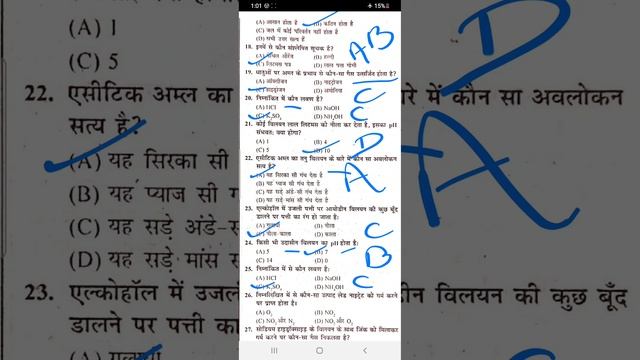 1:01
115%
(A) आसान होता है (B) कठिन होता है
(C) जल में कोई परिवर्तन नहीं होता है
(D) सभी उत्तर सत्य हैं
18. इनमें से कौन संश्लेषित सूचक है?
(B) हल्दी
(C) लिटमस पत्र
AB
19. धातुओं पर अम्ल के प्रभाव से कौन-सा गैस उत्सर्जित होता है?
(A) ऑक्सीजन (B) नाइट्रोजन
(C) हाइड्रोजन
C
20. निम्नांकित में कौन लवण है?
(A) HCl (B) NaOH
(C) K₂SO₄ (D) NH₄OH
C
21. कोई विलयन लाल लिटमस को नीला कर देता है, इसका pH
संभवतः क्या होगा?
(A) 1 (B) 4
(C) 5 (D) 10
D
22. एसीटिक अम्ल का तनु विलयन के बारे में कौन सा अवलोकन
सत्य है?
(A) यह सिरका सी गंध देता है
(B) यह प्याज सी गंध देता है
(C) यह सड़े अंडे-सी गंध देता है
(D) यह सड़े मांस सी गंध देता है
A
23. एल्कोहॉल में उजली पत्ती पर आयोडीन विलयन की कुछ बूँद
डालने पर पत्ती का रंग हो जाता है:
(A) गुलाबी (B) नीला
(C) नीला-काला (D) काला
C
24. किसी भी उदासीन विलयन का pH होता है:
(A) 5 (B) 7
(C) 14 (D) 0
B
25. निम्नांकित में से कौन लवण है:
(A) HCl (B) NaOH
(C) K₂SO₄ (D) NH₄OH
C
26. निम्नलिखित में से कौन-सा उत्पाद लेड नाइट्रेट को गर्म करने
पर प्राप्त होता है।
(A) O₂ (B) NO₂
(C) NO₂ और N₂ (D) NO₂ और O₂
27. सोडियम हाइड्रॉक्साइड के विलयन के साथ जिंक को मिलाकर
गर्म करने पर कौन-सा गैस निकलता है?
(A) 1
(C) 5
22. एसीटिक अम्ल का
सत्य है?
(A) यह सिरका सी
(B) यह प्याज सी ग
(C) यह सड़े अंडे-स
(D) यह सड़े मांस स
23. एल्कोहॉल में उजल
डालने पर पत्ती का
D
रे में कौन सा अवलोकन
A
डीन विलयन की कुछ बूँद